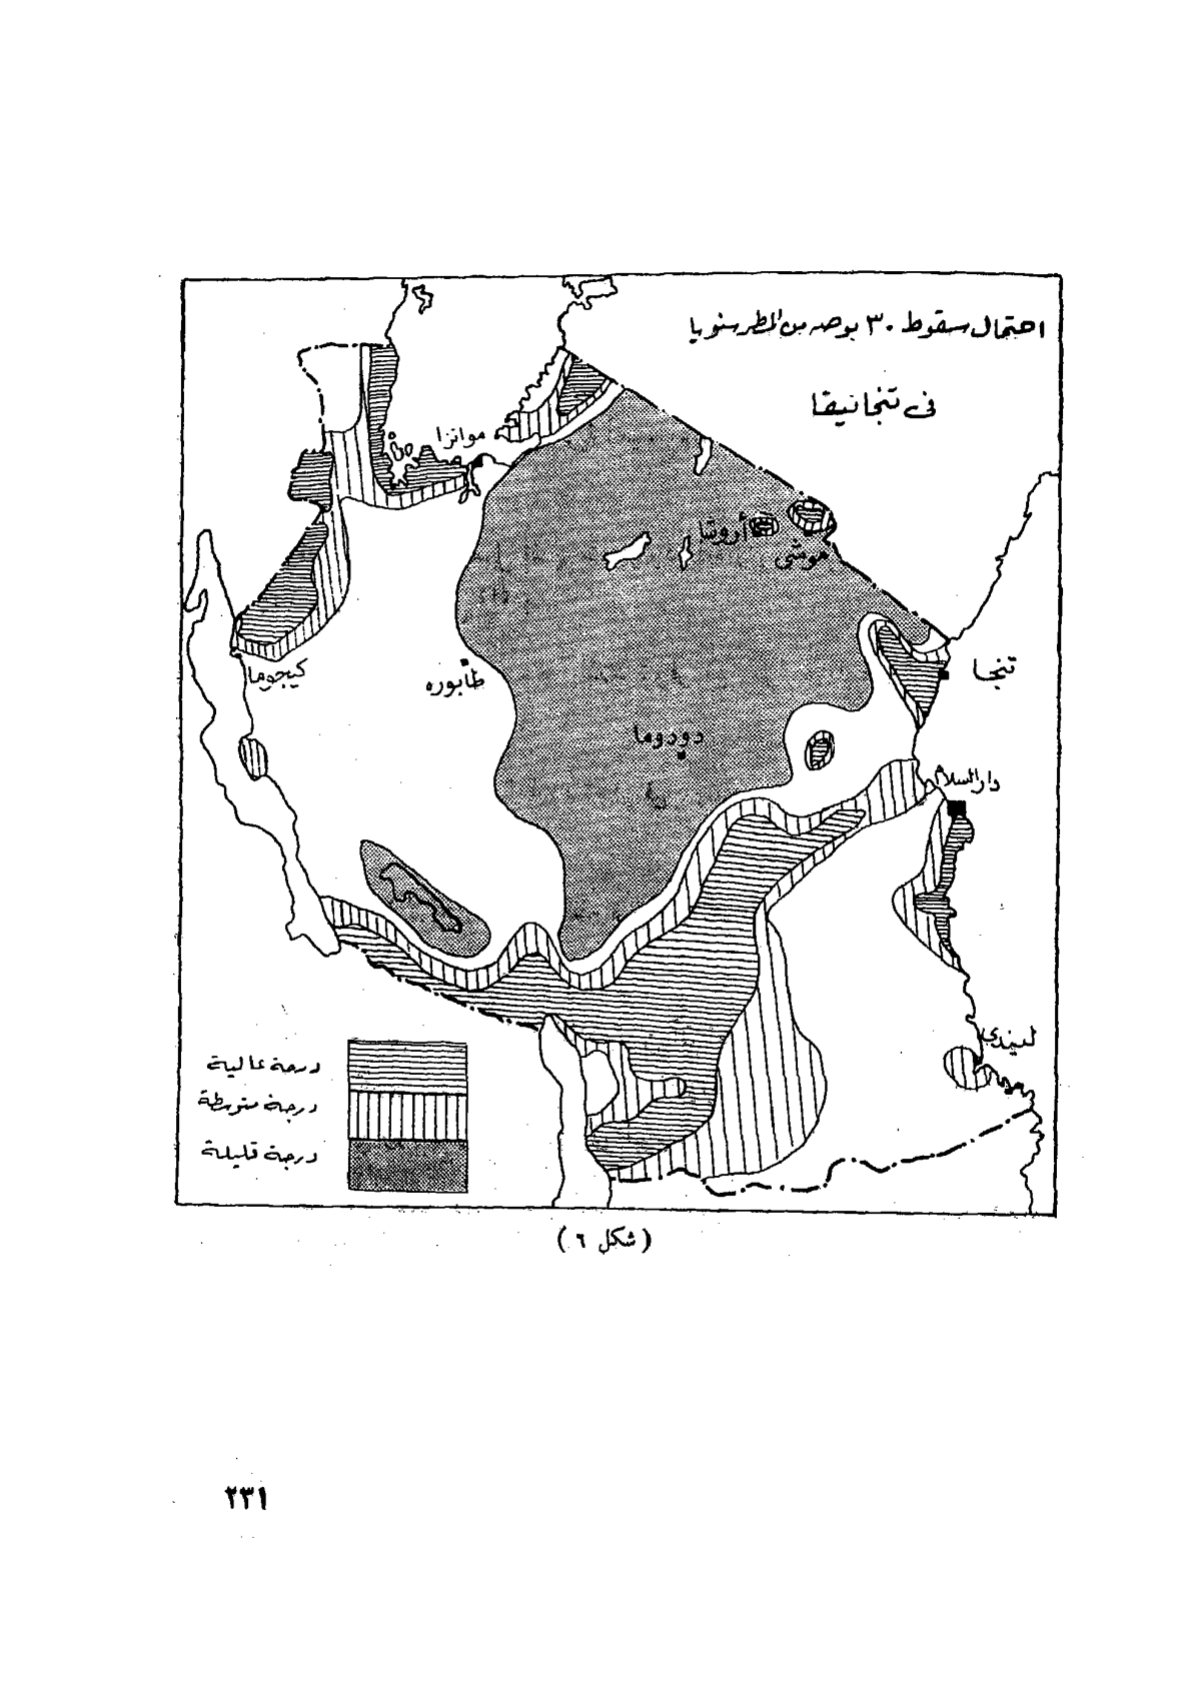 احتمال سقوط ٣٠ بوصه من المطر سنويا
فى تنجانيقا
موانزا
أروشا
موشى
كيجوما
طابوره
تنجا
دودوما
دار السلام
ليندي
درجة عالية
درجة متوسطة
درجة قليلة
( شكل ٦ )
٢٣١